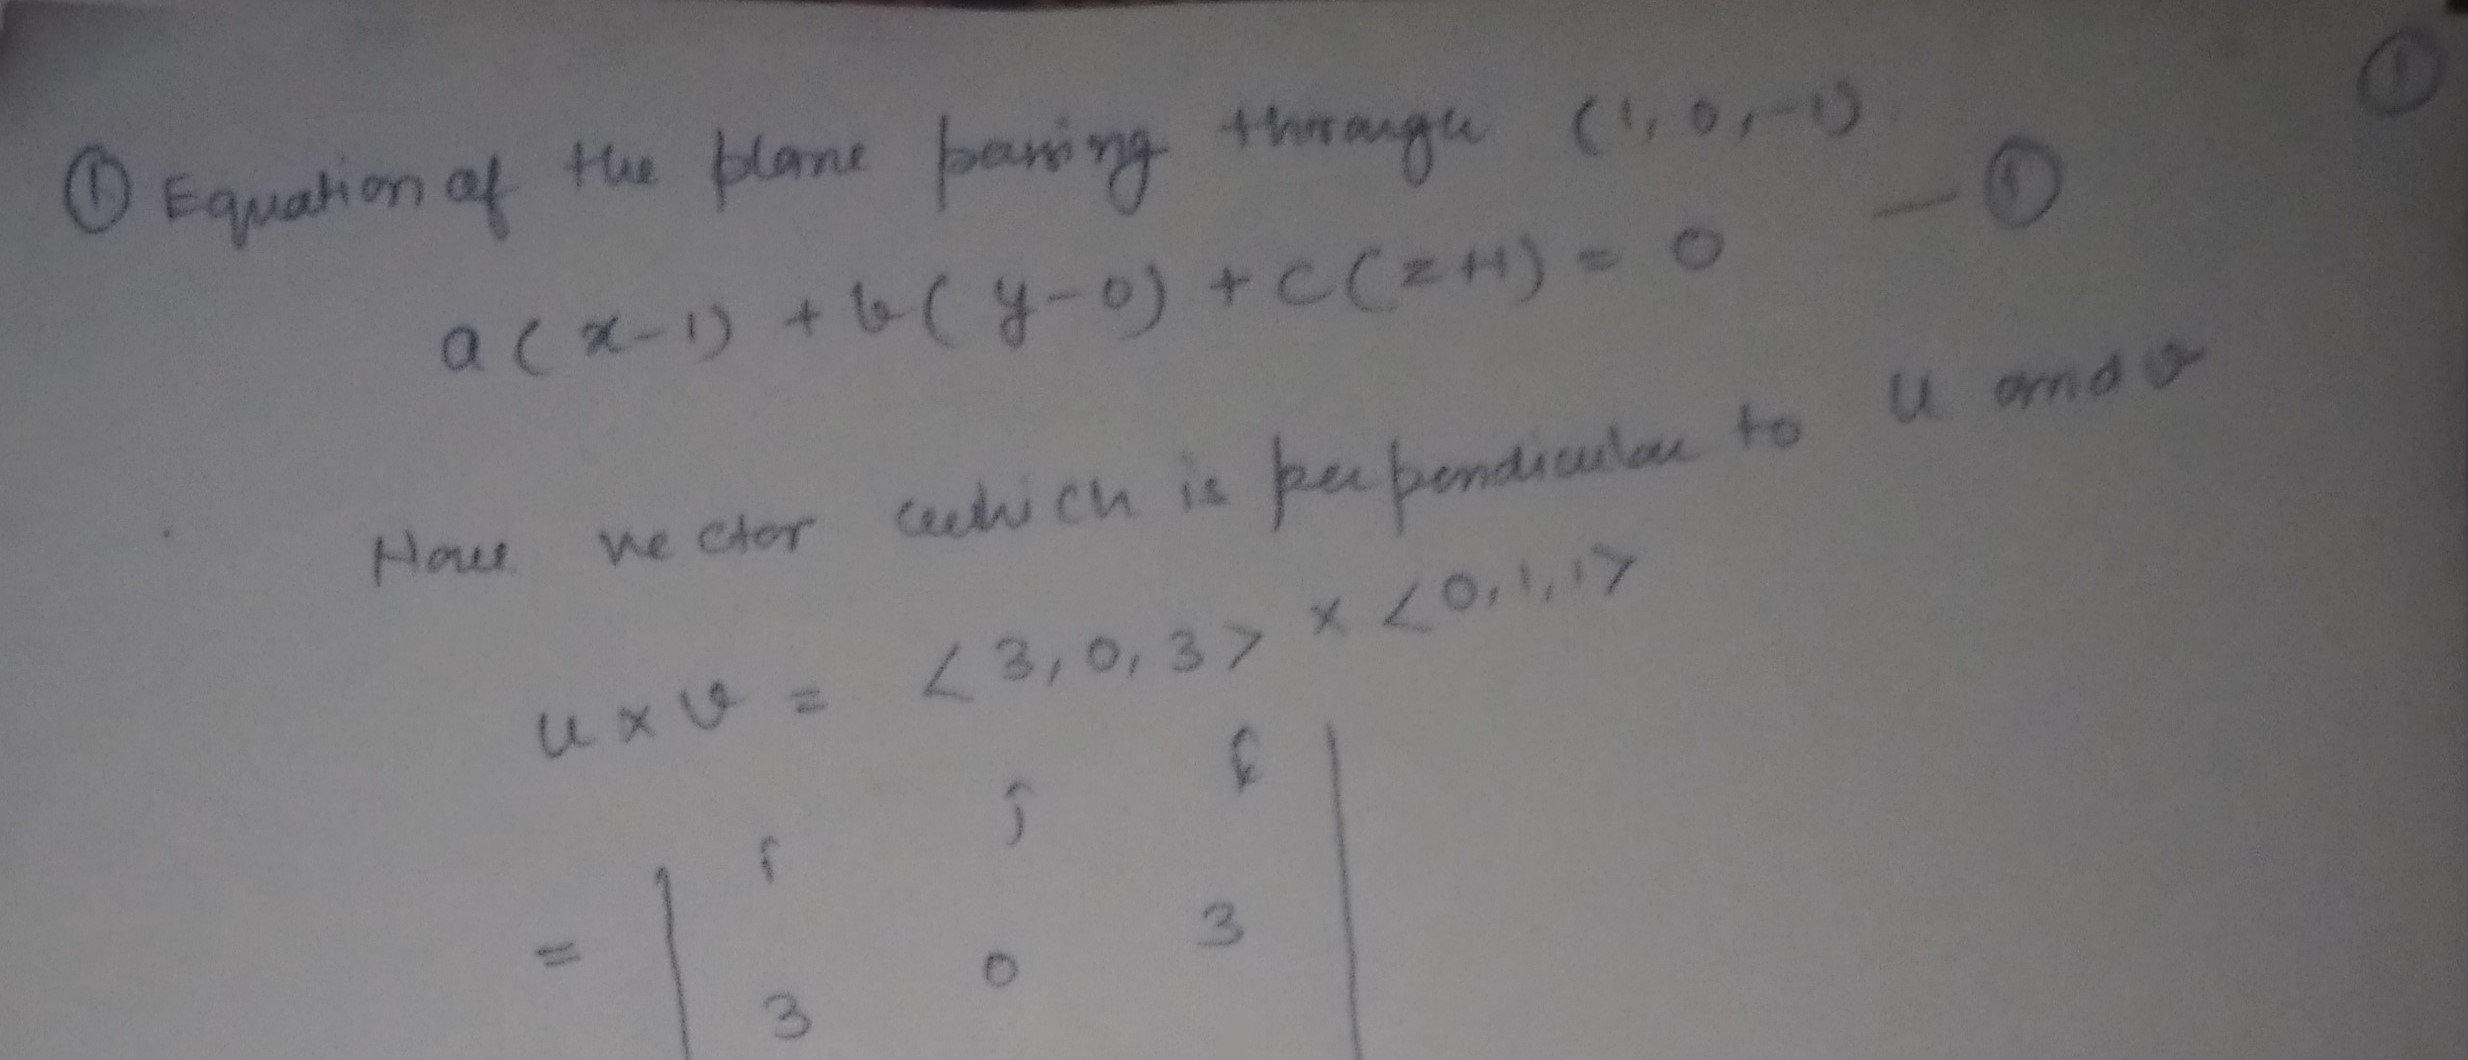 ①
① Equation of the plane passing through (1, 0, -1)
a(x-1) + b(y-0) + c(z+1) = 0 — ①
Now vector which is perpendicular to u and v
u × v = <3, 0, 3> × <0, 1, 1>
= | i j k |
3 0 3